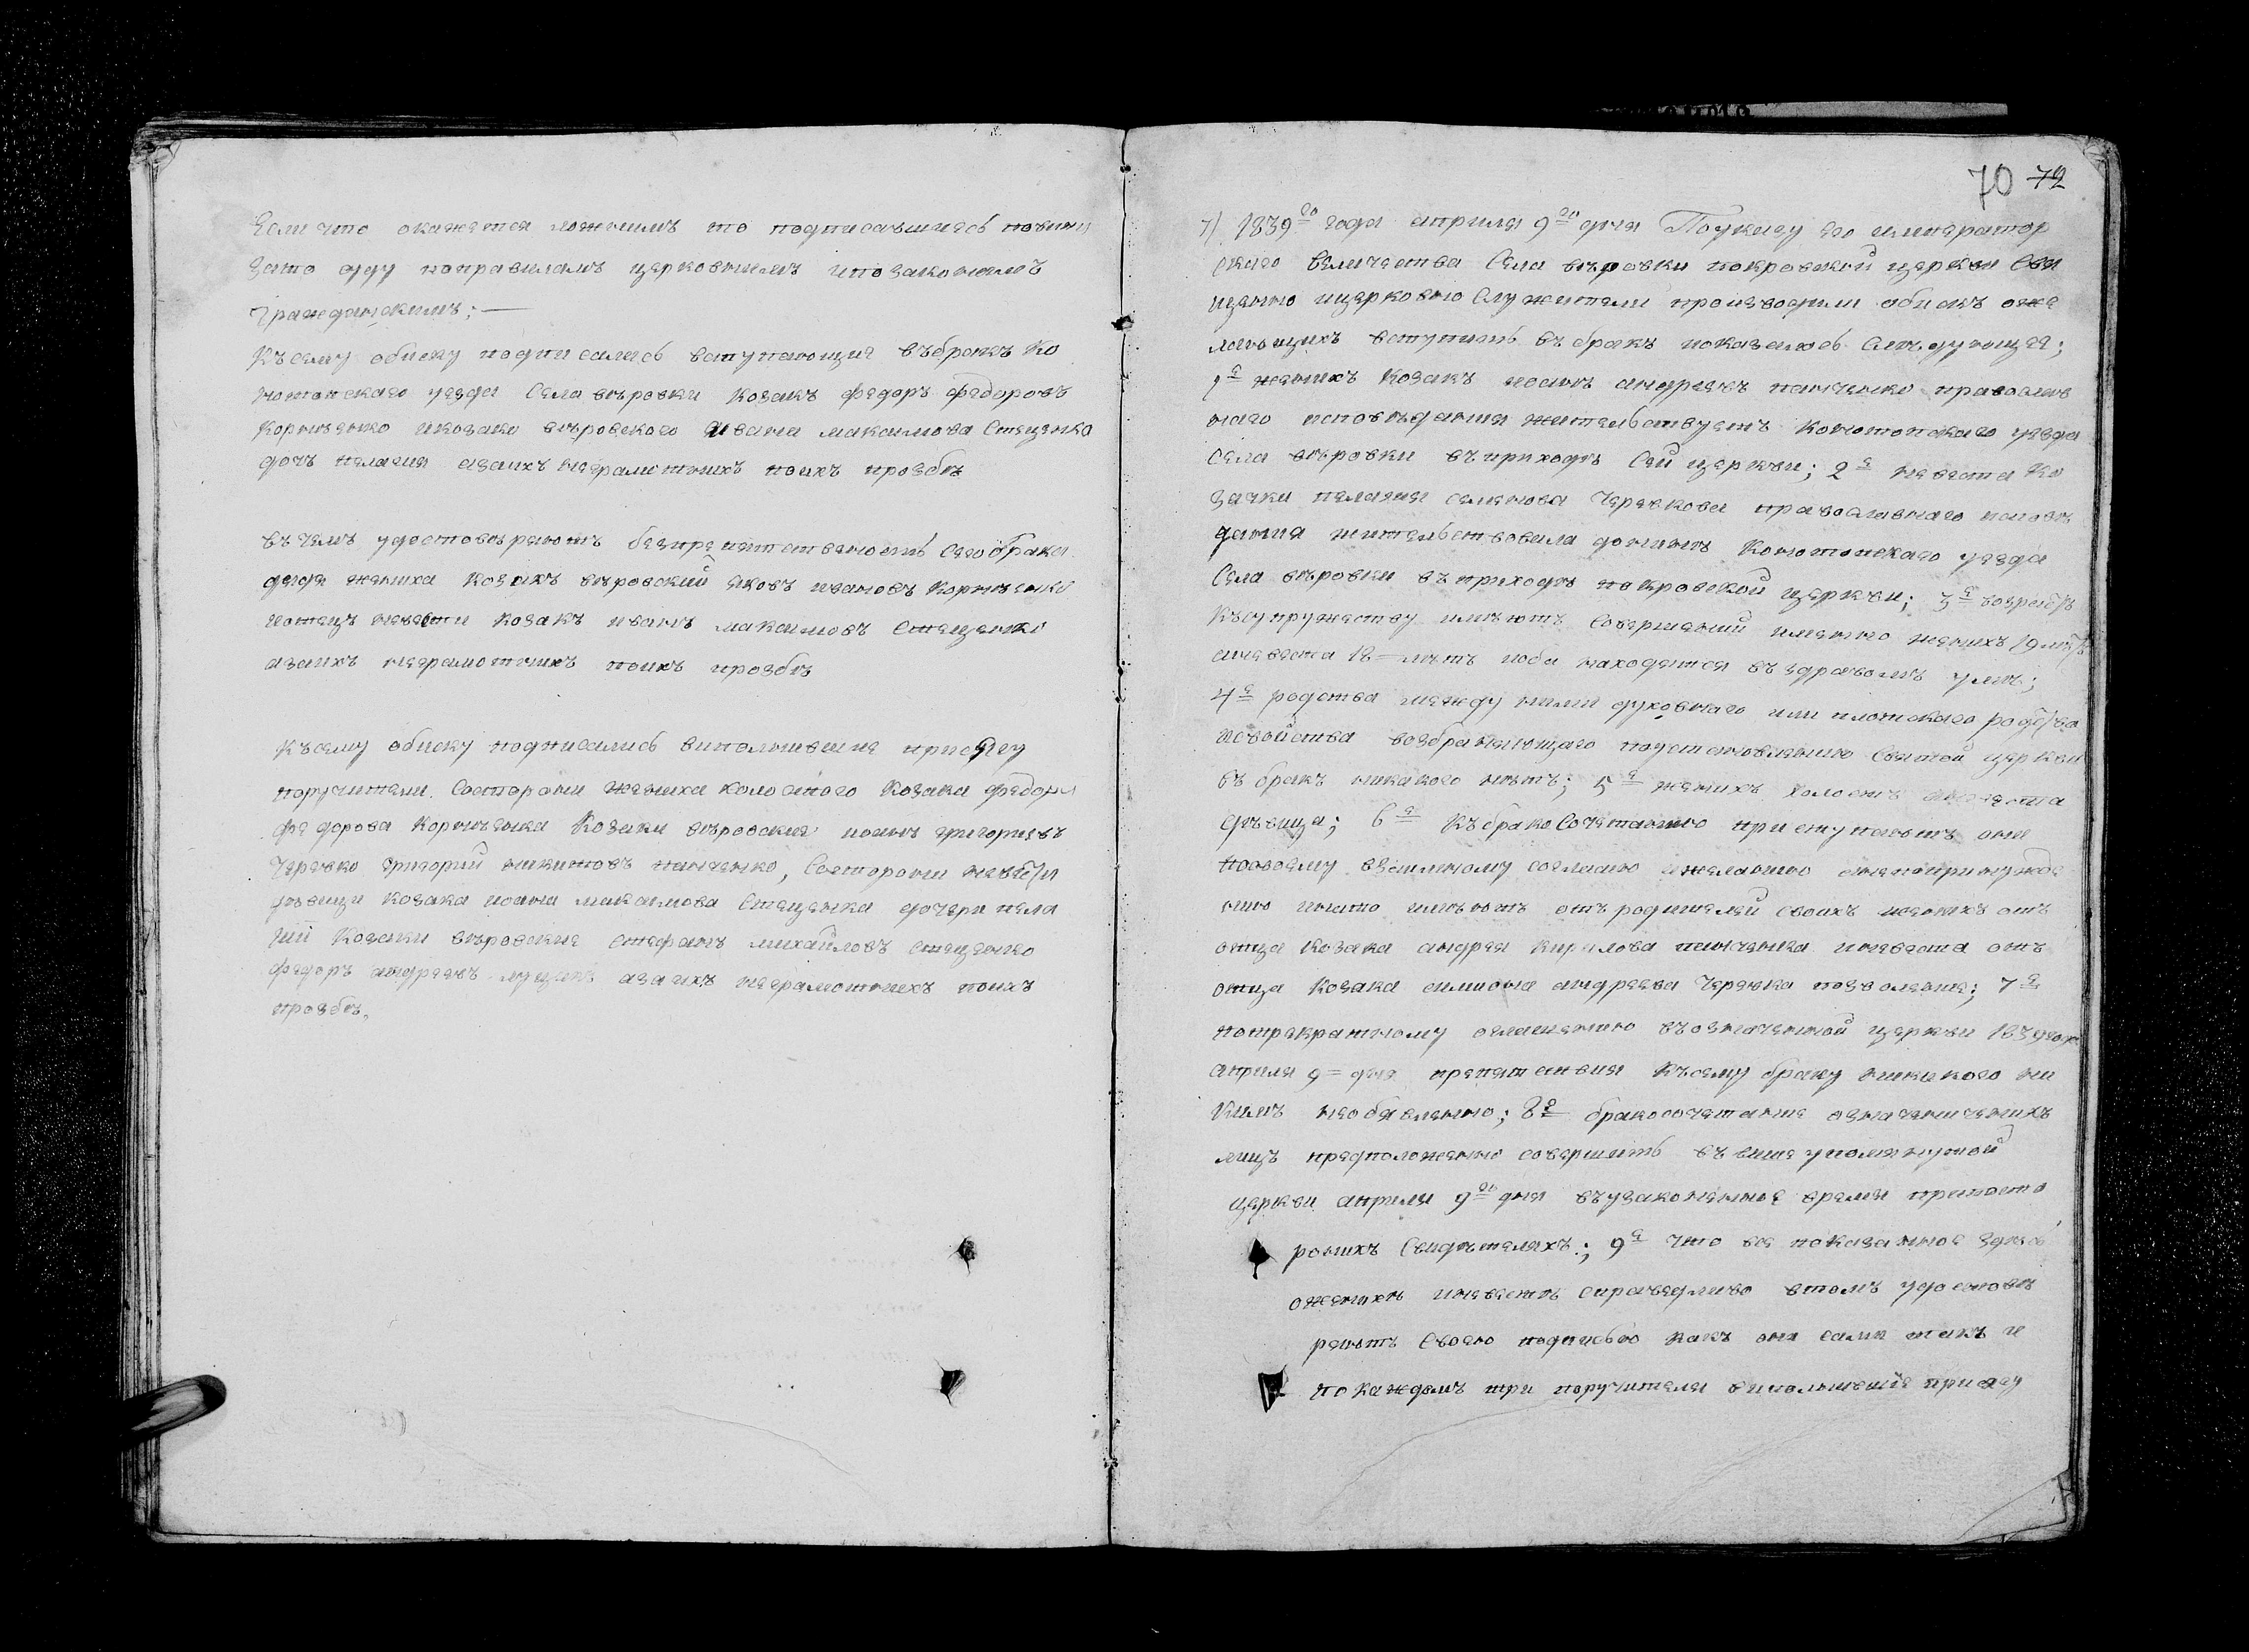 Если что окажется ложнымъ то подписавшиесь повинны
зато суду поправиламъ церковнымъ ипозаконамъ
гражданскимъ; —
Къ сему обиску подписались вступающия въбракъ Ко
нотопскаго уезда Села вѣровки козакъ федоръ федоровъ
Корнѣенко икозака вѣровского ивана максимова Стеценка
дочь пелагия азаихъ неграмотныхъ поихъ прозбѣ
въ чемъ удостовѣряютъ безпрепятственность сего брака
дядя жениха козакъ вѣровский яковъ ивановъ Корнѣенко
иотецъ невести козакъ иванъ максимовъ Стеценко
азаихъ неграмотныхъ поихъ прозбѣ
Къ сему обиску подписались виполнившие присягу
поручители. Состорони жениха холостого козака федора
федорова Корнѣенка Козаки вѣровские иоанъ григориевъ
Черевко григорий никитовъ панченко, Состорони невести
дѣвици козака иоана максимова Стеценка дочери пела
гии Козаки вѣровские стефанъ михайловъ стеценко
федоръ андреевъ азаихъ неграмотныхъ поихъ
прозбѣ.
70 72
7) 1839го года априля 9го дня Поуказу его император
скаго величества Села вѣровки покровской церкви Свя
щенно ицерковно Служители производили обискъ оже
лающихъ вступить въ бракъ показалось следующея;
1е женихъ козакъ иоанъ андреевъ панченко православ
наго исповѣдания жительствуетъ Конотопскаго уезда
Села вѣровки въприходѣ Сей церкви; 2е невеста Ко
зачки пелагия семенова Черевкова православнаго исповѣ
дания жительствовала донинѣ Конотопскаго уезда
Села вѣровки въприходѣ покровской церкви; 3е возрастъ
Късупружеству имѣютъ Совершений именно женихъ 19лѣтъ
аневеста 18 лѣтъ иоба находятся въздравомъ умѣ;
4е родства между ними духовнаго или плотскаго родства
исвойства возбраняющаго поустановлению Святой церкви
въ бракъ никакого нѣтъ; 5е женихъ холостъ аневеста
дѣвица; 6е Къбракосочетанию приступаютъ они
посвоему взаимному согласию ижеланию анепопринужде
нию инато имѣютъ отъ родителей своихъ женихъ отъ
отца козака андрея кирилова панченка иневеста отъ
отца козака симиона андреева Черевка позволение; 7е
потрекратному оглашению въозначенной церкви 1839года
априля 9 дня препятствия къ сему браку никакого ни
кимъ необявленно; 8е бракосочетание
лицъ предположенно совершить въ више упомянутой
церкви априля 9го дня въузаконенное время припосто
роныхъ Свидѣтеляхъ; 9е Что все показанное здесь
оженихѣ иневестѣ справедливо втомъ удостовѣ
ряютъ Своею подписью какъ они сами такъ и
покаждомъ три поручителя виполнивши присягу